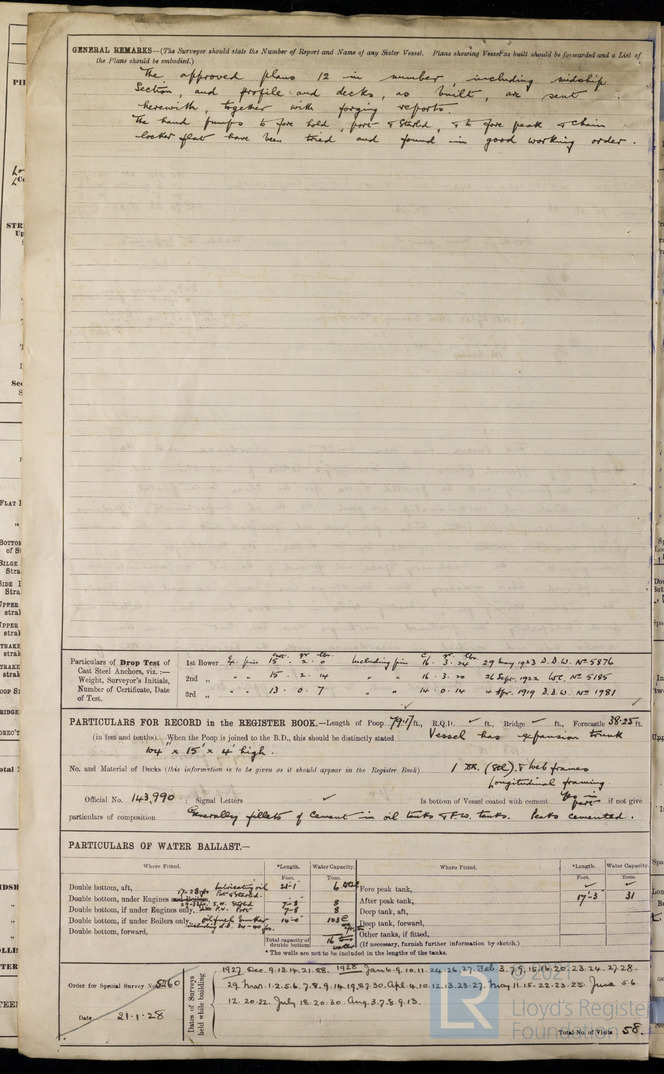 GENERAL REMARKS—(The Surveyor should state the Number of Report and Name of any Sister Vessel. Plans showing Vessel as built should be forwarded and a List of
the Plans should be embodied.)
The approved plans 12 in number, including midship
Section, and profile and decks, as built, are sent
herewith, together with forging reports.
The hand pumps to fore hold, port & Starbd, & to fore peak & chain
locker flat have been tried and found in good working order.
Particulars of Drop Test of
Cast Steel Anchors, viz. :—
Weight, Surveyor's Initials,
Number of Certificate, Date
of Test.
1st Bower Ex. pin 15 . 2 . 0 Including pin 16 . 3 . 24 29 May 1923 D.D.W. No 5876
2nd „ „ „ 15 . 2 . 14 „ „ 16 . 3 . 20 26 Sept. 1922 No 5185
3rd „ „ „ 13 . 0 . 7 „ „ 14 . 0 . 14 4 Apr. 1919 D.D.W. No 1981
PARTICULARS FOR RECORD in the REGISTER BOOK.—Length of Poop 79.17 ft., R.Q.D. ✓ ft., Bridge ✓ ft., Forecastle 38.25 ft.
(in feet and tenths). When the Poop is joined to the B.D., this should be distinctly stated Vessel has expansion trunk
104' x 15' x 4' high.
No. and Material of Decks (this information is to be given as it should appear in the Register Book) 1 Dk. (Stl). & Web frames
Longitudinal framing
Official No. 143,990 ; Signal Letters ✓ Is bottom of Vessel coated with cement Yes in part if not give
particulars of composition Generally fillets of cement in oil tanks & F.W. tanks. Peaks cemented.
PARTICULARS OF WATER BALLAST.—
Where Fitted. *Length. Water Capacity. Where Fitted. *Length. Water Capacity.
Feet. Tons. Feet. Tons.
Double bottom, aft, lubricating oil 21-1 6 Fore peak tank, ✓ ✓
Double bottom, under Engines 7-3 8 After peak tank, 17'-3 31
Double bottom, if under Engines only, 7-3 8 Deep tank, aft,
Double bottom, if under Boilers only, oil fuel bunker 14-0 103 Deep tank, forward,
Double bottom, forward, Other tanks, if fitted,
Total capacity of double bottom 16 tons water (If necessary, furnish further information by sketch.)
* The wells are not to be included in the lengths of the tanks.
Order for Special Survey No. 5260
Date 21-1-28
Dates of Surveys held while building
1927 Dec. 9.13.14.21.28. 1928 Jan 6.9.10.11.24.26.27. Feb. 3.7.9.15.16.20.23.24.27.28.
29. Mar. 1.2.5.6.7.8.9.14.19.27.30. Apl. 4.10.12.13.23.27. May 11.15.22.23.25. June 5.6.
12.20.22. July 18.20.30. Aug. 3.7.8.9.13.
Total No. of Visits 58.
LR
Lloyd's Register
Foundation